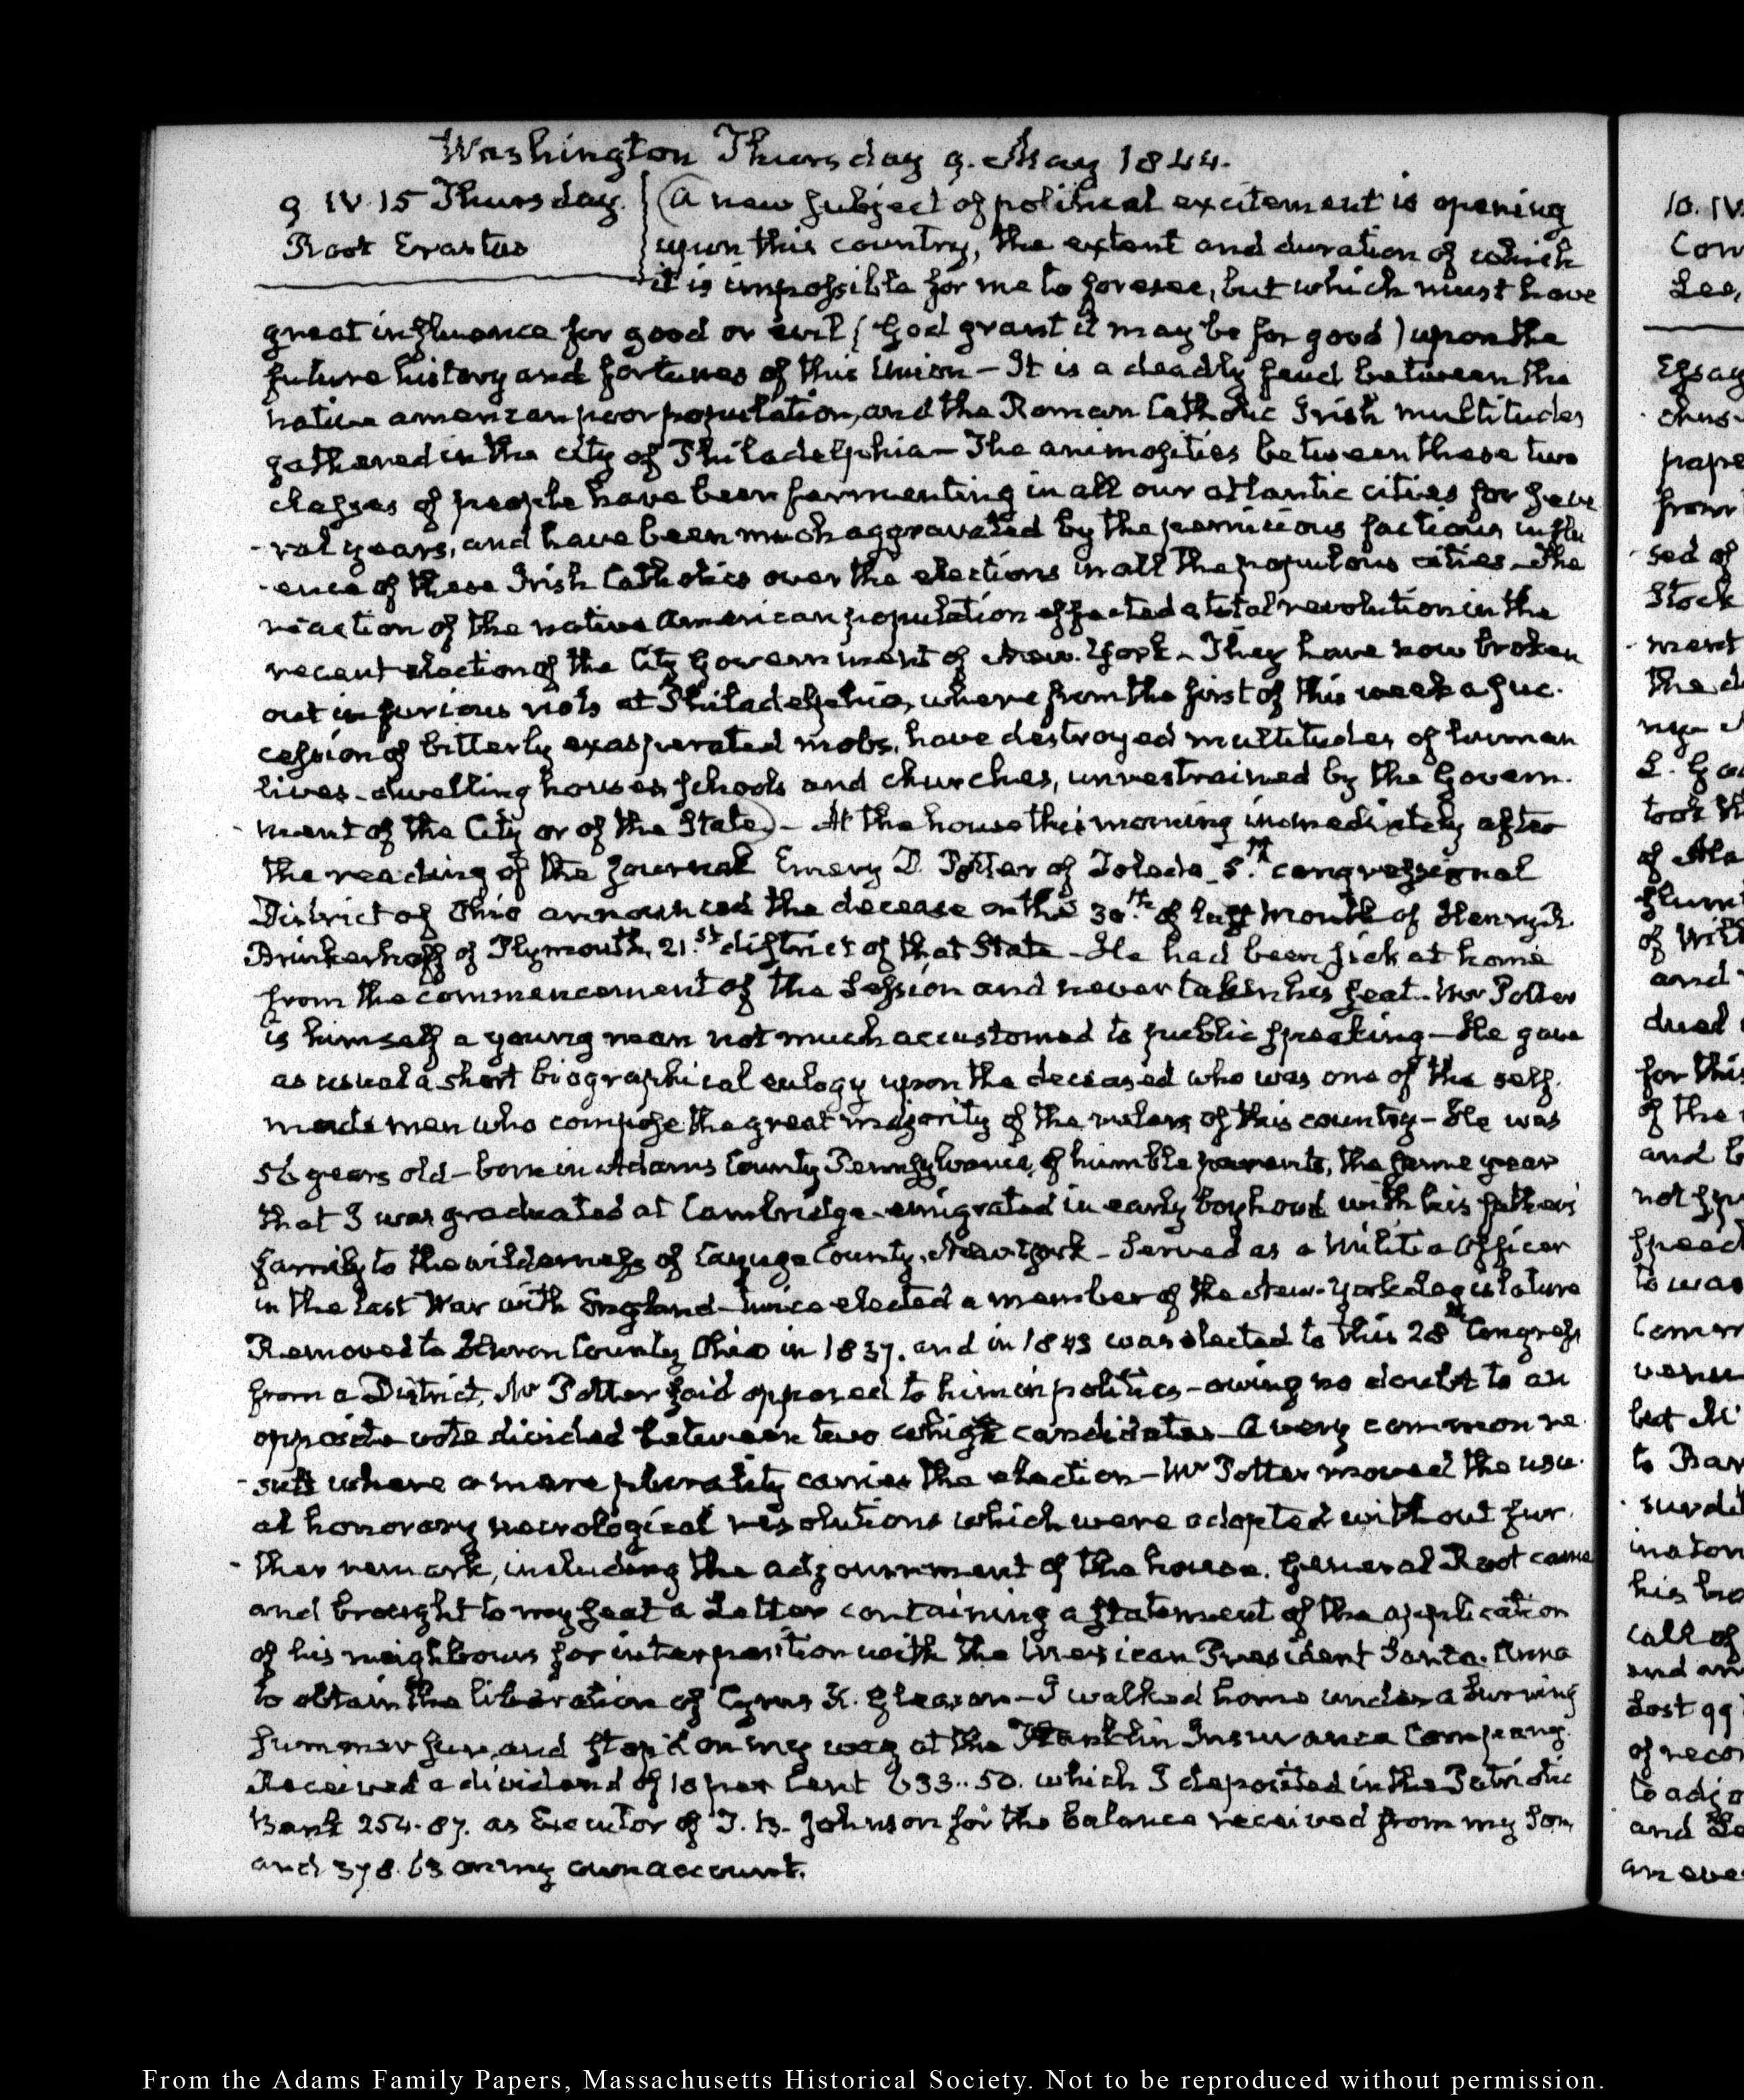 Washington Thursday 9. May 1844.
9. IV. 15 Thursday.
Root Erastus
A new subject of political excitement is opening
upon this country, the extent and duration of which
it is impossible for me to foresee, but which must have
great influence for good or evil (God grant it may be for good) upon the
future history and fortunes of this Union — It is a deadly feud between the
native american poor population, and the Roman Catholic Irish multitudes
gathered in the city of Philadelphia — The animosities between these two
classes of people have been fermenting in all our atlantic cities for seve
-ral years, and have been much aggravated by the pernicious factious influ
-ence of these Irish Catholics over the elections in all the populous cities — The
reaction of the native American population effected a total revolution in the
recent election of the City Government of New-York — They have now broken
out in furious riots at Philadelphia, where from the first of this week a suc-
cession of bitterly exasperated mobs, have destroyed multitudes of human
lives - dwelling houses, schools and churches, unrestrained by the Govern-
-ment of the City or of the State) — At the house this morning immediately after
the reading of the journal Emery D. Potter of Toledo 5.th congressional
District of Ohio announced the decease on the 30.th of last month of Henry R.
Brinkerhoff of Plymouth, 21.st district of that State — He had been sick at home
from the commencement of the Session and never taken his seat. Mr Potter
is himself a young man not much accustomed to public speaking — He gave
as usual a short biographical eulogy upon the deceased who was one of the self-
made men who compose the great majority of the rulers of this country — He was
56 years old — born in Adams County Pennsylvania, of humble parents, the same year
that I was graduated at Cambridge - emigrated in early boyhood with his father's
family to the wilderness of Cayuga County, New York — Served as a Militia Officer
in the last War with England — twice elected a member of the New-York Legislature
Removed to Huron County Ohio in 1837. and in 1843 was elected to this 28th Congress
from a District, Mr Potter said opposed to him in politics — owing no doubt to an
opposite vote divided between two whig candidates — A very common re
-sult where a mere plurality carries the election — Mr Potter moved the usu-
al honorary necrological resolutions which were adopted without fur-
-ther remark, including the adjournment of the house. General Root came
and brought to my seat a Letter containing a statement of the application
of his neighbours for interposition with the Mexican President Santa-Anna
to obtain the liberation of Cyrus K. Gleason — I walked home under a burning
summer sun, and stop'd on my way at the Franklin Insurance Company.
Received a dividend of 10 per Cent 633..50. which I deposited in the Patriotic
Bank 254-87. as Executor of T. B. Johnson for the balance received from my Son,
and 378.63 on my own account.
10. IV
Con
Lee,
Essay
chus-
pape
from
sed of
Stock
-ment
the d
took th
of Ala
of
and
dued
for this
of the
and b
speech
to was
Comm
but Mr
to Bar
-surdi
his
call of
and an
Lost 99
of reco
to adjo
and
an eve
From the Adams Family Papers, Massachusetts Historical Society. Not to be reproduced without permission.